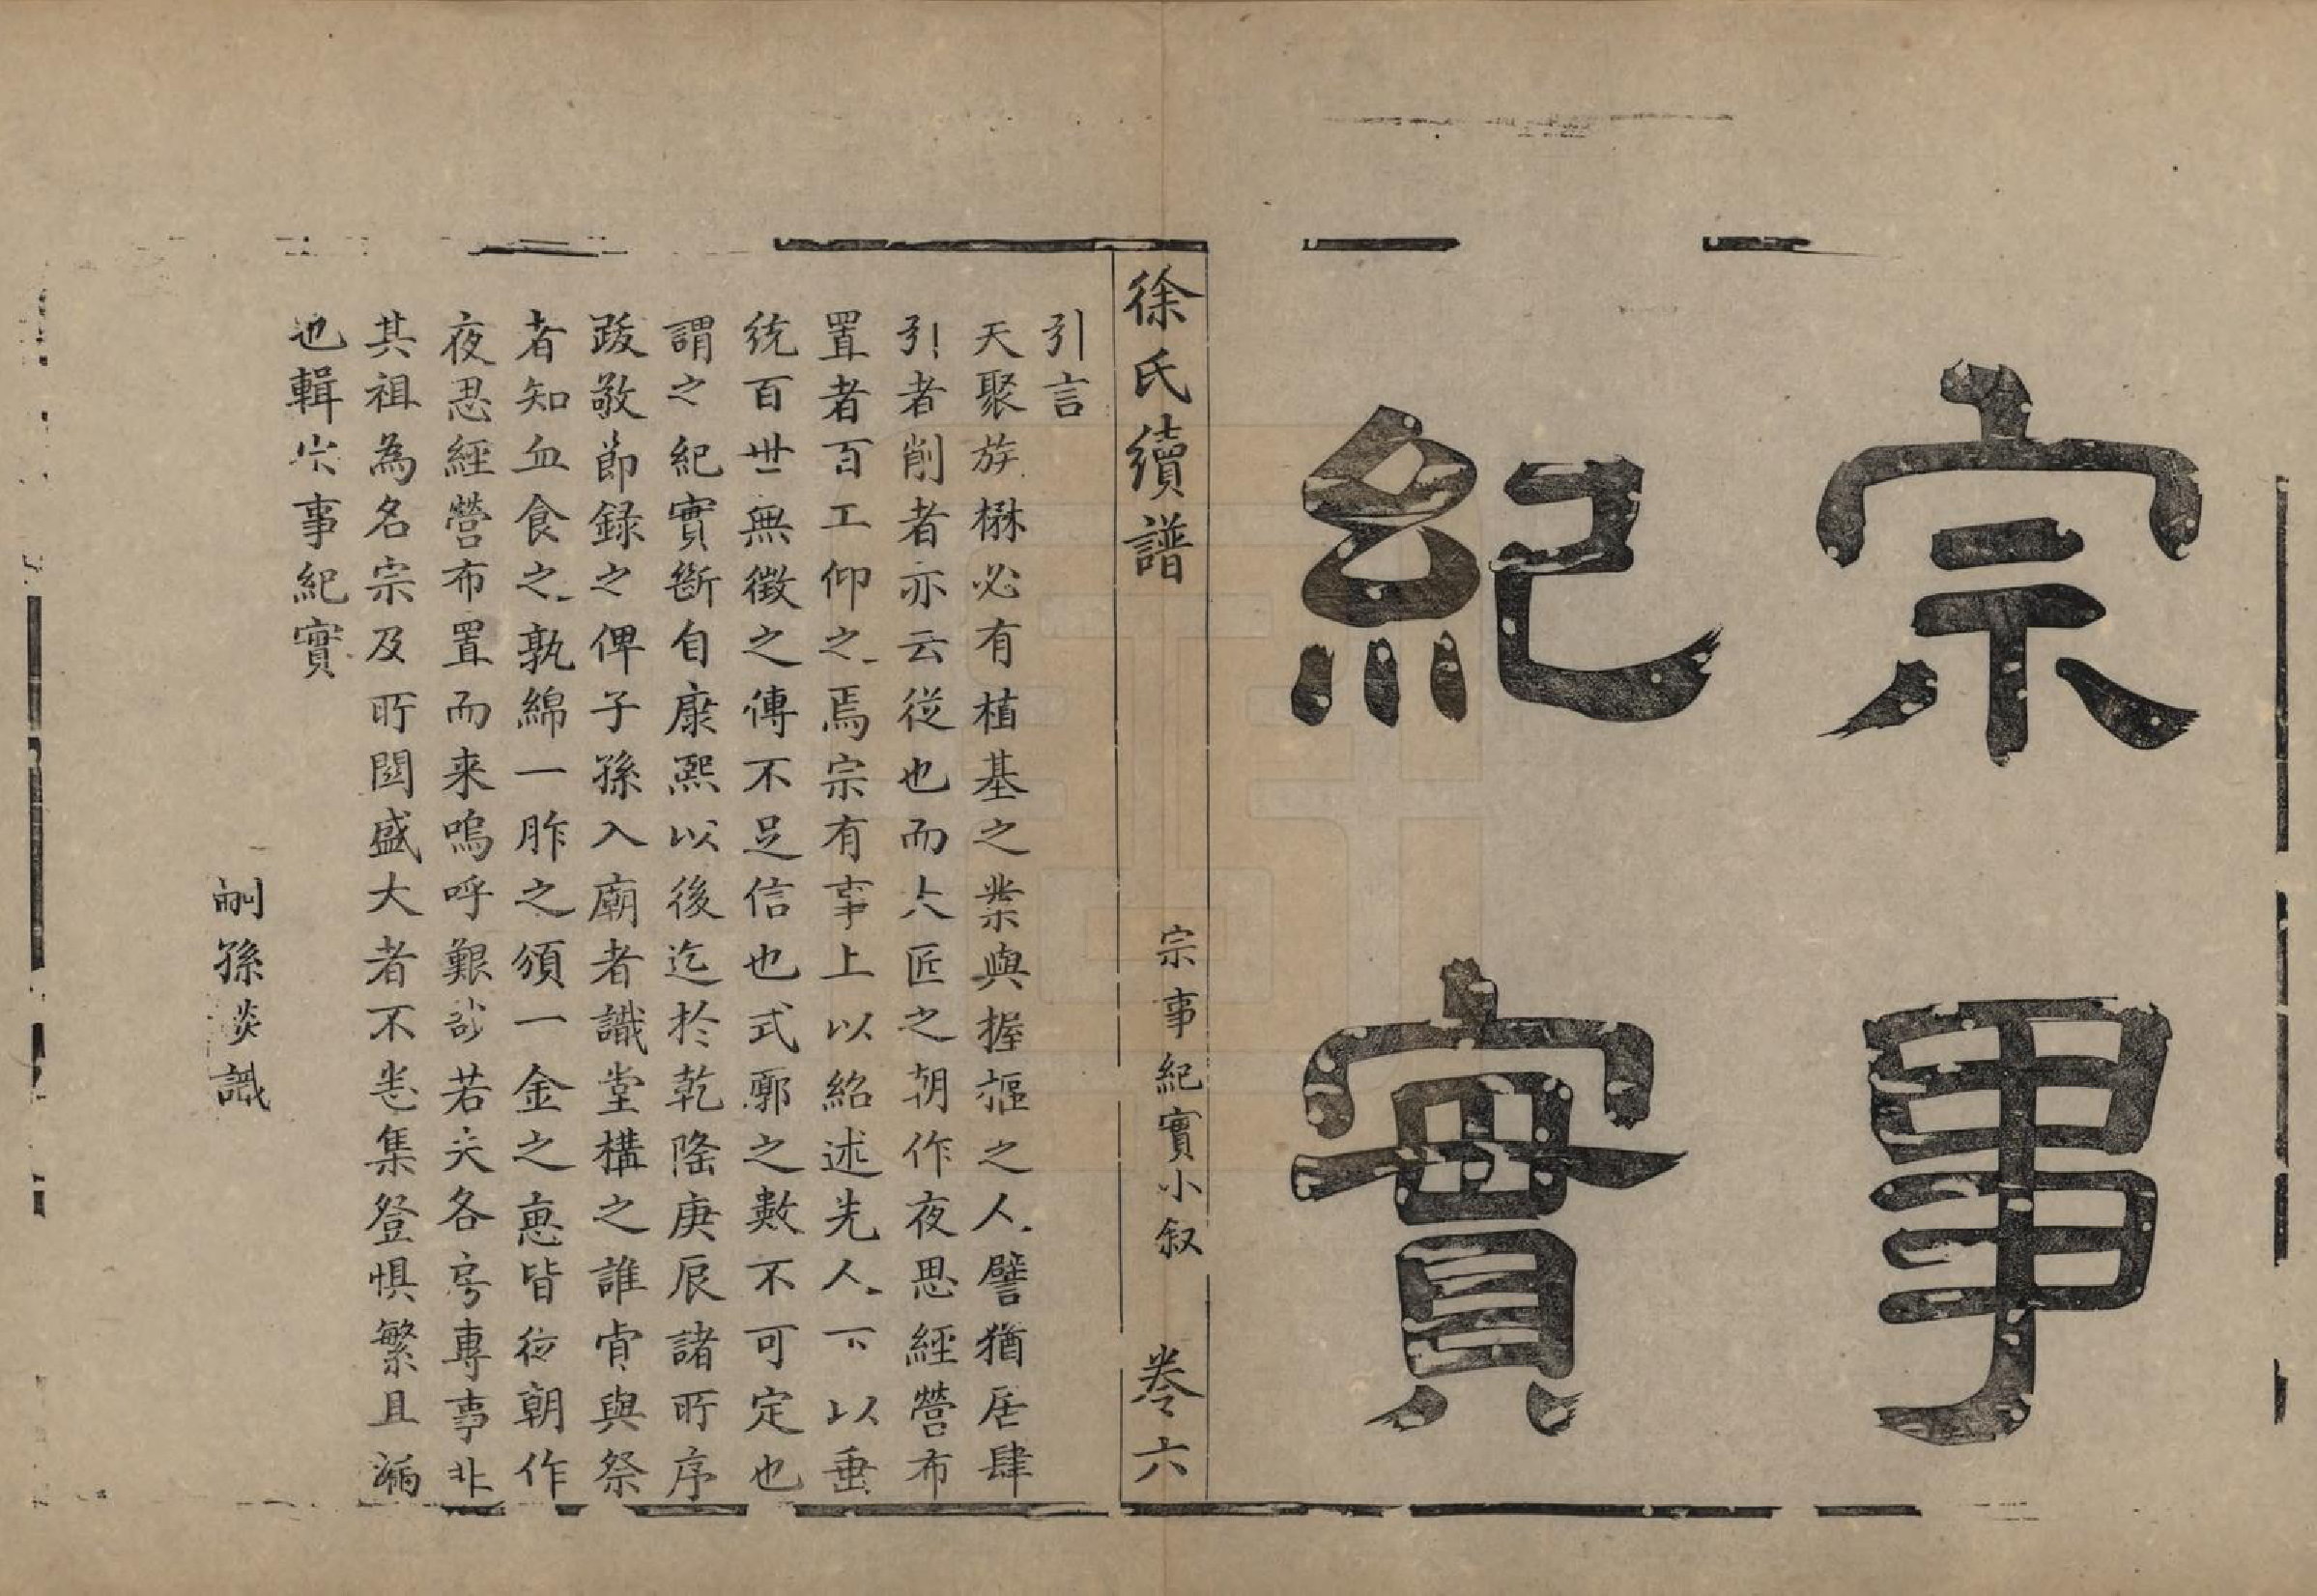 宗事
紀實
徐氏續譜
宗事紀實小叙
卷六
引言
夫聚族楙必有植基之業與握樞之人譬猶居肆
引者削者亦云從也而大匠之朝作夜思經營布
置者百工仰之焉宗有事上以紹述先人下以垂
統百世無徵之傳不足信也式郭之數不可定也
謂之紀實斷自康熙以後迄於乾隆庚辰諸所序
跋敬節録之俾子孫入廟者識堂構之誰肯與祭
者知血食之孰綿一胙之頒一金之惠皆從朝作
夜思經營布置而来嗚呼艱哉若夫各房專事非
其祖為名宗及所関盛大者不悉集登惧繁且漏
也輯宗事紀實
嗣孫炎識